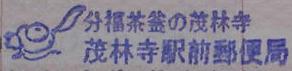 分福茶釜の茂林寺
茂林寺駅前郵便局